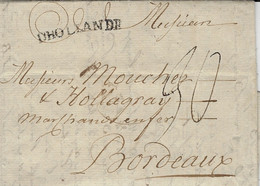 DHOLLANDE
Monsieur
Messieurs Mouchez
& Hollagray
marchands en fer
Bordeaux